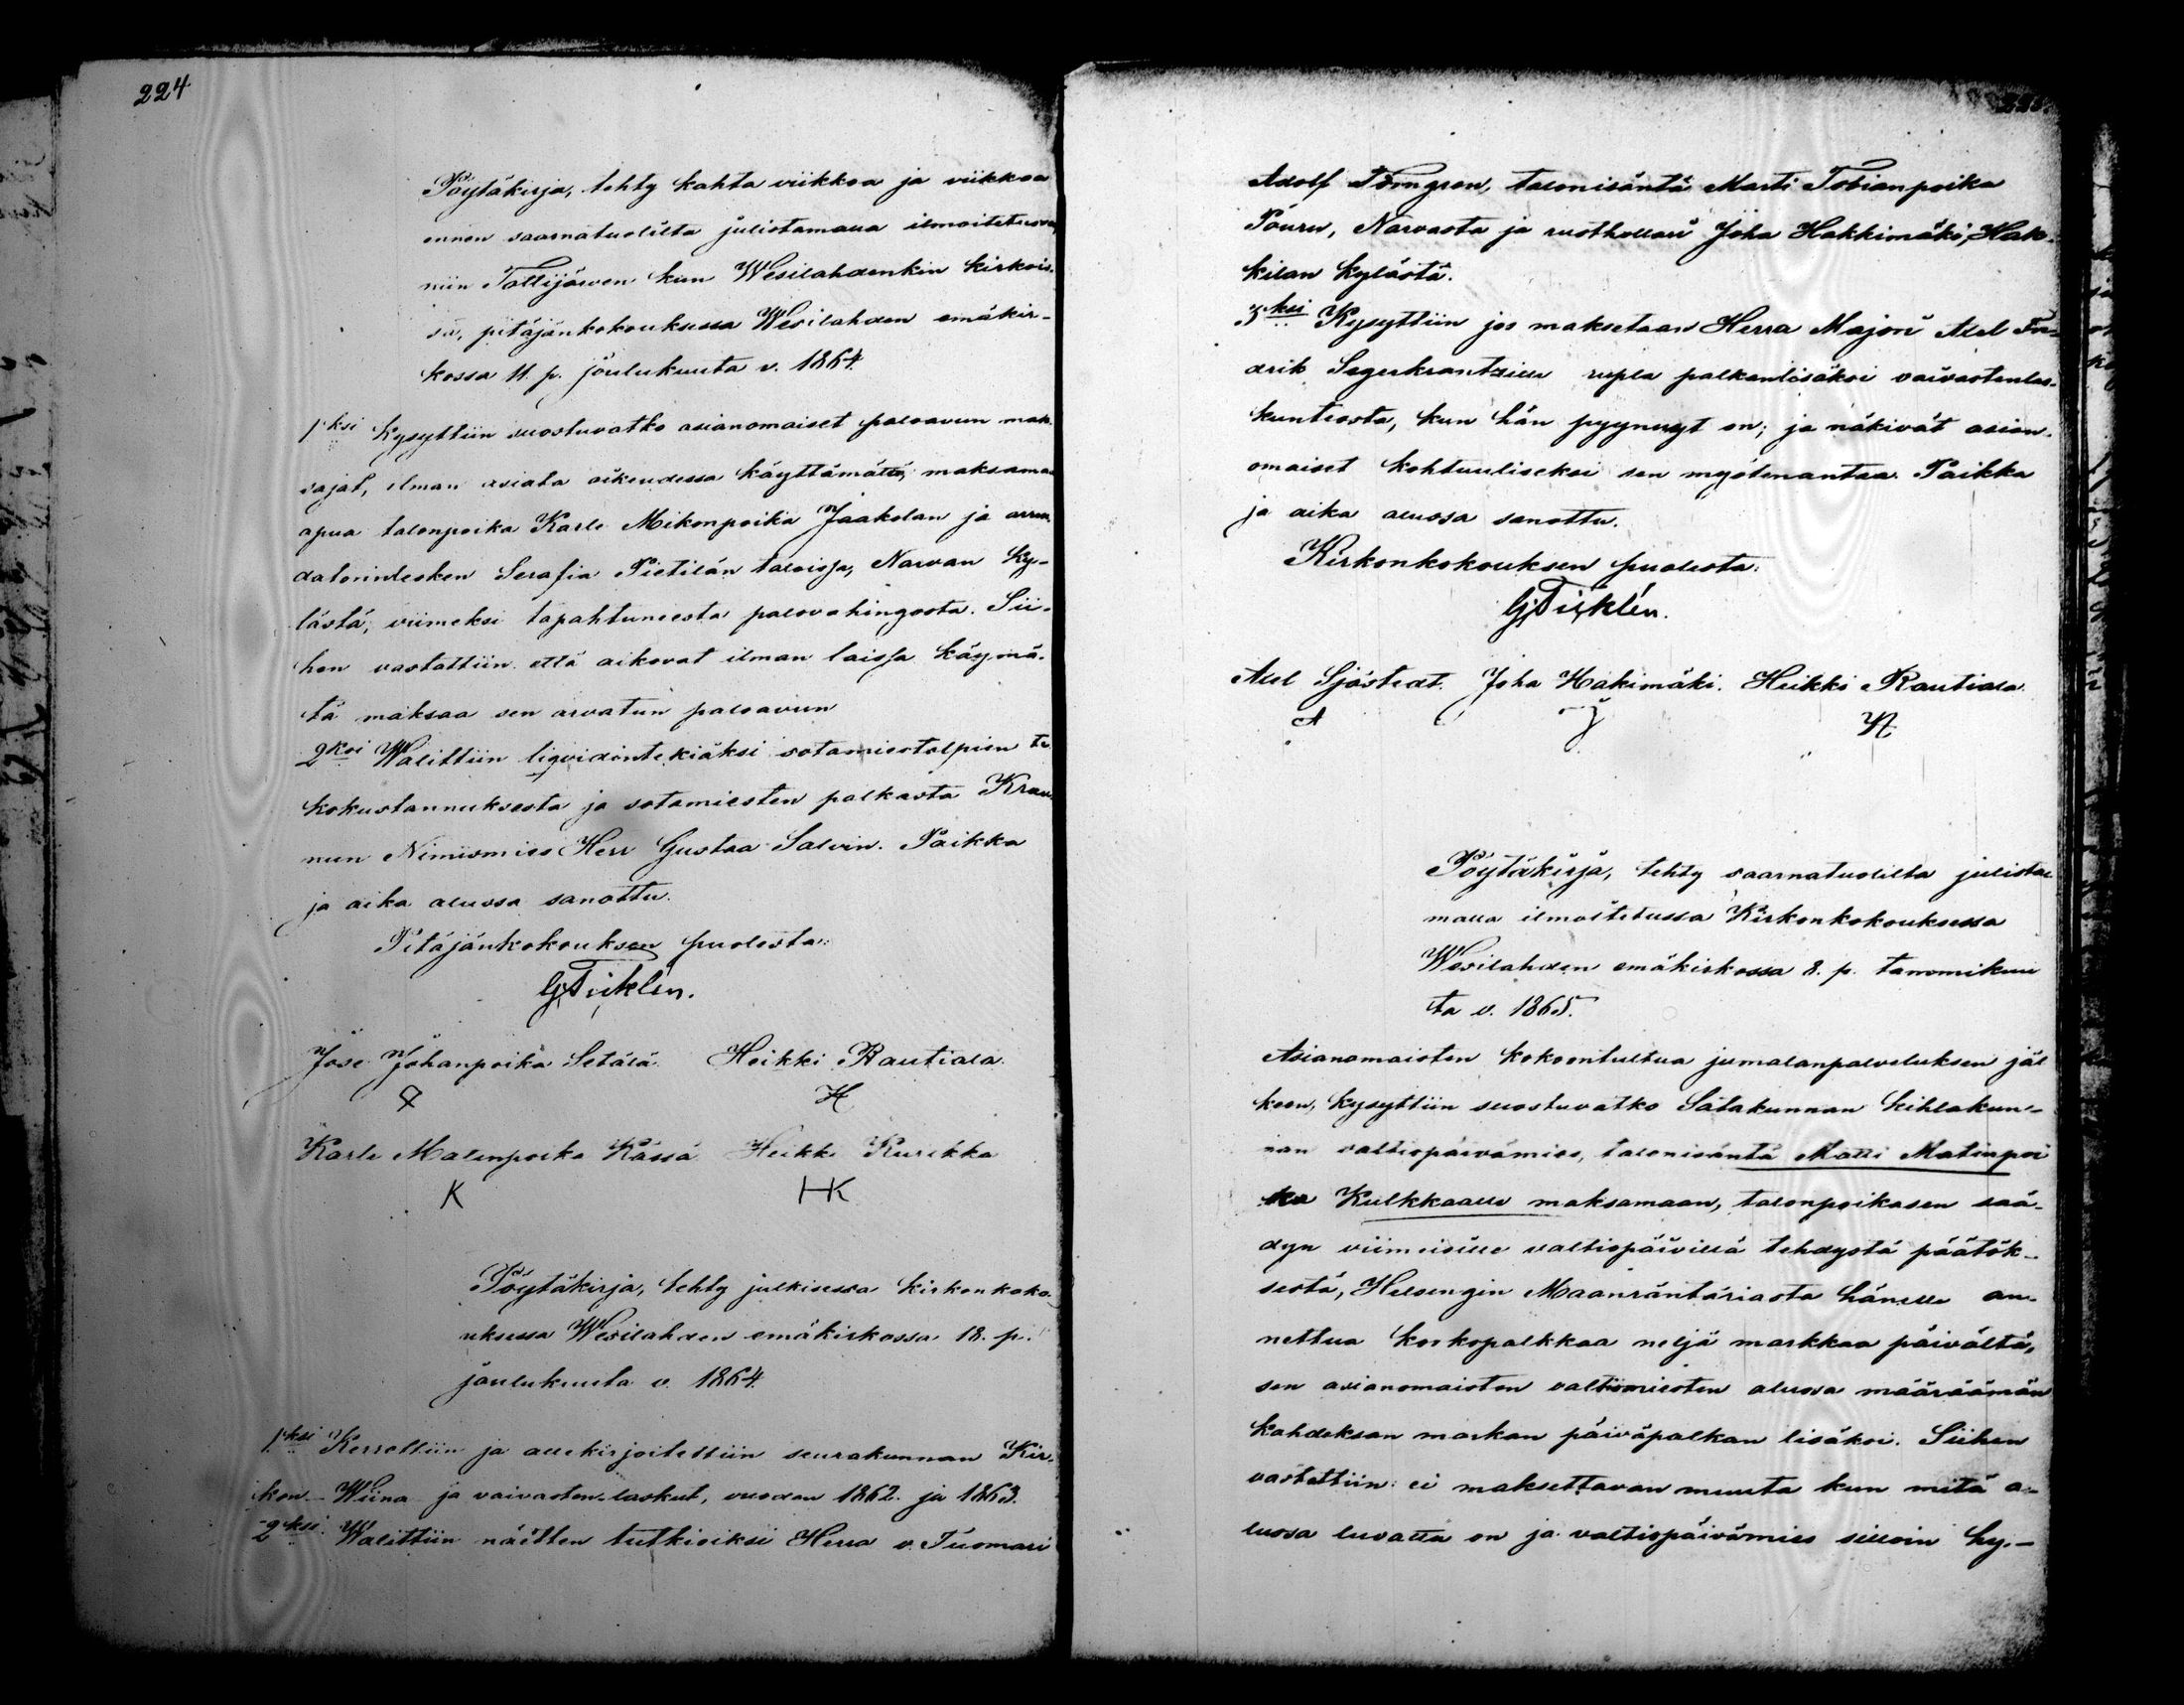 224
Pöytäkirja, tehty kahta viikkoa ja viikkoa
ennen saarnatuolilta julistamalla ilmoitetussa,
niin Tottijärven kun Wesilahdenkin kirkois-
sa, pitäjänkokouksessa Wesilahden emäkir-
kossa 11. p. joulukuuta v. 1864.
1.ksi Kysyttiin suostuvatko asianomaiset paloavun mak-
sajat, ilman asiata oikeudessa käyttämättä, maksamaan
apua talonpoika Karle Mikonpoika Jaakolan ja arren
datorinlesken Serafia Pietilän taloissa, Narvan ky-
lästä, viimeksi tapahtuneesta palovahingosta. Sii-
hen vastattiin että aikovat ilman laissa käymä-
tä maksaa sen arvatun paloavun
2ksi Walittiin liqvidöntekiäksi sotamiestolpien te
kokustannuksesta ja sotamiesten palkasta Kruu-
nun Nimismies Herr Gustaa Salvin. Paikka
ja aika alussa sanottu.
Pitäjänkokouksen puolesta:
Gj Ticklén.
Jose Johanpoika Setälä. Heikki Rautiala.
H
Karle Matinpoika Kässä Heikki Kurikka
K HK
Pöytäkirja, tehty julkisessa kirkonkoko-
uksessa Wesilahden emäkirkossa 18. p.
joulukuuta v. 1864.
1.ksi Kerrottiin ja allekirjoitettiin seurakunnan Kir-
kon- Wiina- ja vaivasten-laskut, vuoden 1862. ja 1863.
2ksi. Walittiin näitten tutkioiksi Herra v. Tuomari
225.
Adolf Törngren, talonisäntä Marti Tobianpoika
Pouru, Narvasta ja rusthollari Joha Hakkimäki, Hak-
kilan kylästä.
3ksi Kysyttiin jos maksetaan Herra Majori Axel Fre-
drik Segerkrantzille rupla palkanlisäksi vaivastenlas-
kunteosta, kun hän pyynnyt on; ja näkivät asian-
omaiset kohtuuliseksi sen myötenantaa. Paikka
ja aika alussa sanottu.
Kirkonkokouksen puolesta:
Gj Ticklén.
Axel Sjöstedt. Joha Hakimäki. Heikki Rautiala.
A J H
Pöytäkirja, tehty saarnatuolilta julista
malla ilmoitetussa Kirkonkokouksessa
Wesilahden emäkirkossa 8. p. tammikuu
ta v. 1865.
Asianomaisten kokoontultua jumalanpalveluksen jäl
keen, kysyttiin suostuvatko Satakunnan kihlakun-
nan valtiopäivämies, talonisäntä Matti Matinpoi
ka Kulkkaalle maksamaan, talonpoikasen sää-
dyn viimeisille valtiopäivillä tehdystä päätök-
sestä, Helsengin Maanräntäriasta hänelle an-
nettua korkopalkkaa neljä markkaa päivältä,
sen asianomaisten valtiomiesten alussa määräämän
kahdeksan markan päiväpalkan lisäksi. Siihen
vastattiin: ei maksettavan muuta kun mitä a-
lussa luvattu on ja valtiopäivämies silloin hy-